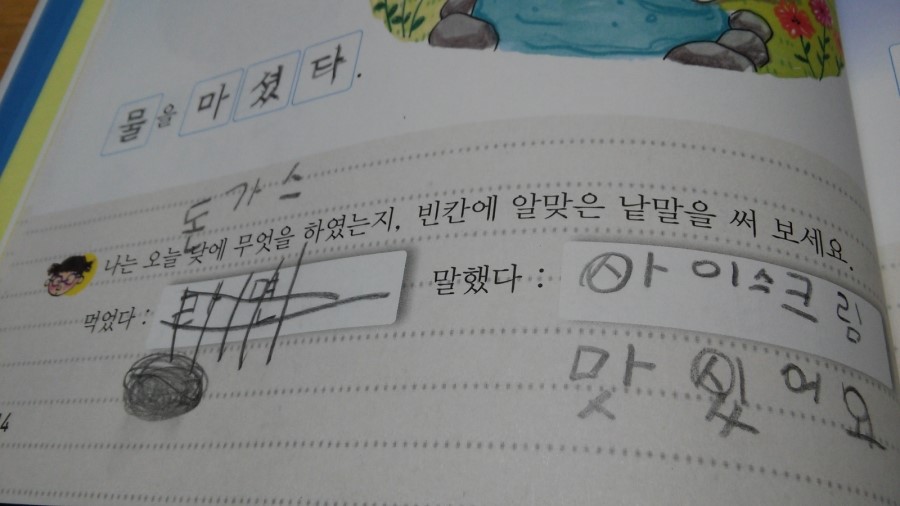 물을 마셨다.
돈가스
나는 오늘 낮에 무엇을 하였는지, 빈칸에 알맞은 낱말을 써 보세요.
먹었다 : 말했다 : 아이스크림
맛있어요